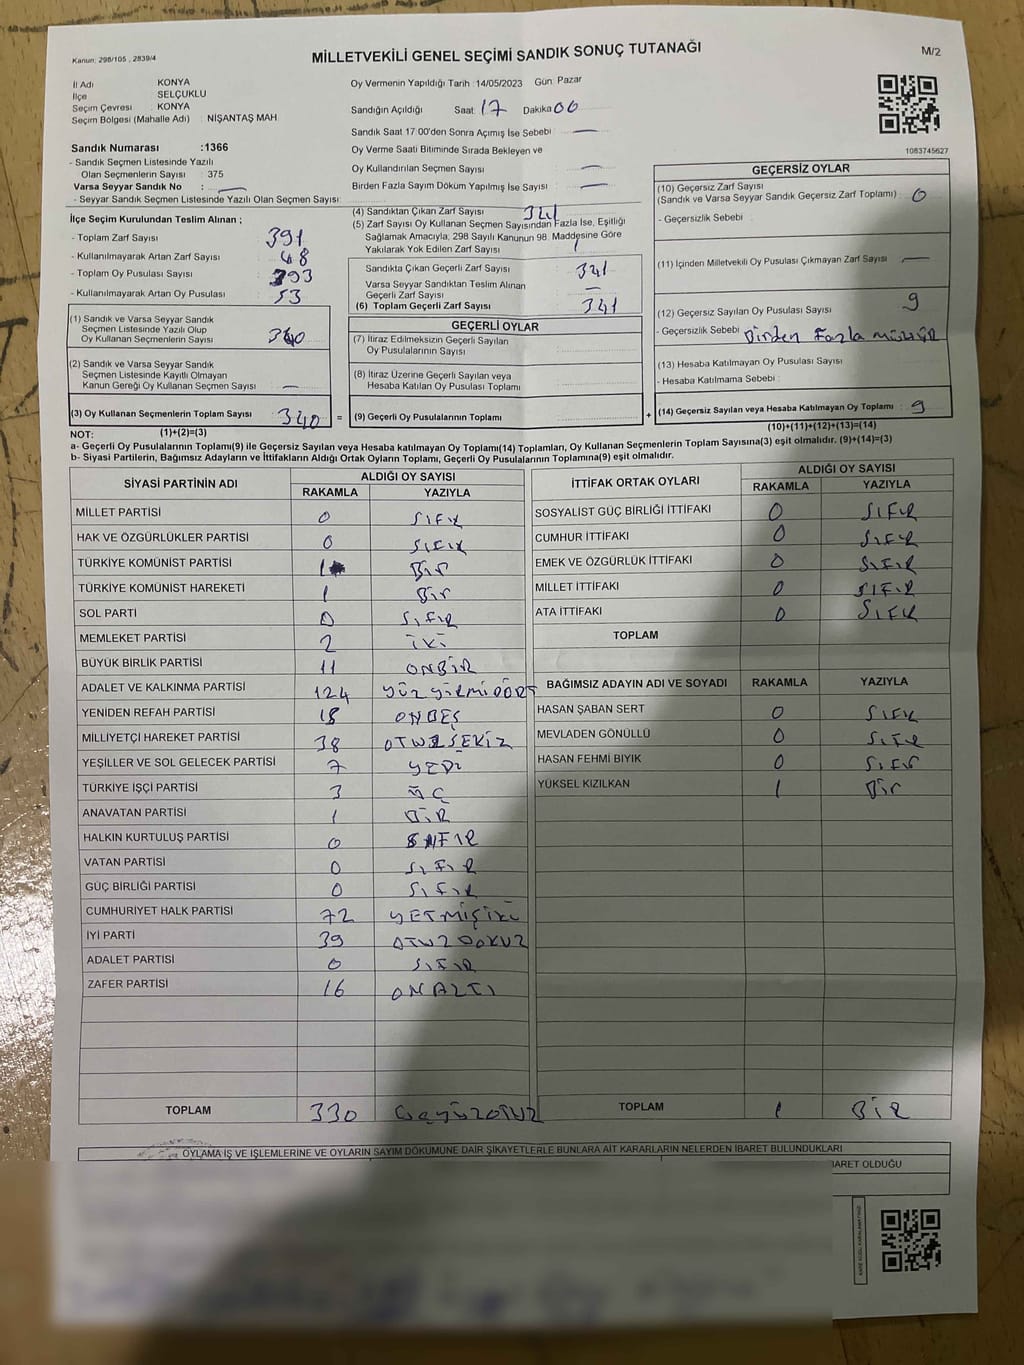 Kanun: 298/105 , 2839/4
MİLLETVEKİLİ GENEL SEÇİMİ SANDIK SONUÇ TUTANAĞI
M/2
İl Adı KONYA
İlçe SELÇUKLU
Seçim Çevresi : KONYA
Seçim Bölgesi (Mahalle Adı) : NİŞANTAŞ MAH.
Oy Vermenin Yapıldığı Tarih : 14/05/2023 Gün: Pazar
Sandığın Açıldığı Saat: 17 Dakika 00
Sandık Saat 17:00'den Sonra Açımış İse Sebebi : —
Oy Verme Saati Bitiminde Sırada Bekleyen ve
Oy Kullandırılan Seçmen Sayısı : —
Birden Fazla Sayım Döküm Yapılmış İse Sayısı : —
1083745627
Sandık Numarası :1366
- Sandık Seçmen Listesinde Yazılı
Olan Seçmenlerin Sayısı : 375
Varsa Seyyar Sandık No : —
- Seyyar Sandık Seçmen Listesinde Yazılı Olan Seçmen Sayısı:
İlçe Seçim Kurulundan Teslim Alınan ;
- Toplam Zarf Sayısı 391
- Kullanılmayarak Artan Zarf Sayısı : 48
- Toplam Oy Pusulası Sayısı : 393
- Kullanılmayarak Artan Oy Pusulası : 53
(1) Sandık ve Varsa Seyyar Sandık
Seçmen Listesinde Yazılı Olup
Oy Kullanan Seçmenlerin Sayısı : 340
(2) Sandık ve Varsa Seyyar Sandık
Seçmen Listesinde Kayıtlı Olmayan
Kanun Gereği Oy Kullanan Seçmen Sayısı : —
(3) Oy Kullanan Seçmenlerin Toplam Sayısı : 340 =
(1)+(2)=(3)
(4) Sandıktan Çıkan Zarf Sayısı 341
(5) Zarf Sayısı Oy Kullanan Seçmen Sayısından Fazla İse, Eşitliği
Sağlamak Amacıyla, 298 Sayılı Kanunun 98. Maddesine Göre
Yakılarak Yok Edilen Zarf Sayısı : 1
Sandıkta Çıkan Geçerli Zarf Sayısı : 341
Varsa Seyyar Sandıktan Teslim Alınan
Geçerli Zarf Sayısı : —
(6) Toplam Geçerli Zarf Sayısı : 341
GEÇERLİ OYLAR
(7) İtiraz Edilmeksizin Geçerli Sayılan
Oy Pusulalarının Sayısı :
(8) İtiraz Üzerine Geçerli Sayılan veya
Hesaba Katılan Oy Pusulası Toplamı :
(9) Geçerli Oy Pusulalarının Toplamı : +
GEÇERSİZ OYLAR
(10) Geçersiz Zarf Sayısı
(Sandık ve Varsa Seyyar Sandık Geçersiz Zarf Toplamı) : 0
- Geçersizlik Sebebi :
(11) İçinden Milletvekili Oy Pusulası Çıkmayan Zarf Sayısı : —
(12) Geçersiz Sayılan Oy Pusulası Sayısı : 9
- Geçersizlik Sebebi : Birden Fazla mühür
(13) Hesaba Katılmayan Oy Pusulası Sayısı :
- Hesaba Katılmama Sebebi :
(14) Geçersiz Sayılan veya Hesaba Katılmayan Oy Toplamı : 9
(10)+(11)+(12)+(13)=(14)
NOT:
a- Geçerli Oy Pusulalarının Toplamı(9) ile Geçersiz Sayılan veya Hesaba katılmayan Oy Toplamı(14) Toplamları, Oy Kullanan Seçmenlerin Toplam Sayısına(3) eşit olmalıdır. (9)+(14)=(3)
b- Siyasi Partilerin, Bağımsız Adayların ve İttifakların Aldığı Ortak Oyların Toplamı, Geçerli Oy Pusulalarının Toplamına(9) eşit olmalıdır.
SİYASİ PARTİNİN ADI ALDIĞI OY SAYISI
RAKAMLA YAZIYLA
MİLLET PARTİSİ 0 SIFIR
HAK VE ÖZGÜRLÜKLER PARTİSİ 0 SIFIR
TÜRKİYE KOMÜNİST PARTİSİ 1 Bir
TÜRKİYE KOMÜNİST HAREKETİ 1 Bir
SOL PARTİ 0 SIFIR
MEMLEKET PARTİSİ 2 iKi
BÜYÜK BİRLİK PARTİSİ 11 ONBİR
ADALET VE KALKINMA PARTİSİ 124 YÜZYİRMİDÖRT
YENİDEN REFAH PARTİSİ 15 ONBEŞ
MİLLİYETÇİ HAREKET PARTİSİ 38 OTUZSEKİZ
YEŞİLLER VE SOL GELECEK PARTİSİ 7 YEDİ
TÜRKİYE İŞÇİ PARTİSİ 3 ÜÇ
ANAVATAN PARTİSİ 1 BİR
HALKIN KURTULUŞ PARTİSİ 0 SIFIR
VATAN PARTİSİ 0 SIFIR
GÜÇ BİRLİĞİ PARTİSİ 0 SIFIR
CUMHURİYET HALK PARTİSİ 72 YETMİŞİKİ
İYİ PARTİ 39 OTUZDOKUZ
ADALET PARTİSİ 0 SIFIR
ZAFER PARTİSİ 16 ONALTI
TOPLAM 330 üçyüzotuz
İTTİFAK ORTAK OYLARI ALDIĞI OY SAYISI
RAKAMLA YAZIYLA
SOSYALİST GÜÇ BİRLİĞİ İTTİFAKI 0 SIFIR
CUMHUR İTTİFAKI 0 SIFIR
EMEK VE ÖZGÜRLÜK İTTİFAKI 0 SIFIR
MİLLET İTTİFAKI 0 SIFIR
ATA İTTİFAKI 0 SIFIR
TOPLAM
BAĞIMSIZ ADAYIN ADI VE SOYADI RAKAMLA YAZIYLA
HASAN ŞABAN SERT 0 SIFIR
MEVLADEN GÖNÜLLÜ 0 SIFIR
HASAN FEHMİ BIYIK 0 SIFIR
YÜKSEL KIZILKAN 1 Bir
TOPLAM 1 BİR
OYLAMA İŞ VE İŞLEMLERİNE VE OYLARIN SAYIM DÖKÜMÜNE DAİR ŞİKAYETLERLE BUNLARA AİT KARARLARIN NELERDEN İBARET BULUNDUKLARI
İBARET OLDUĞU